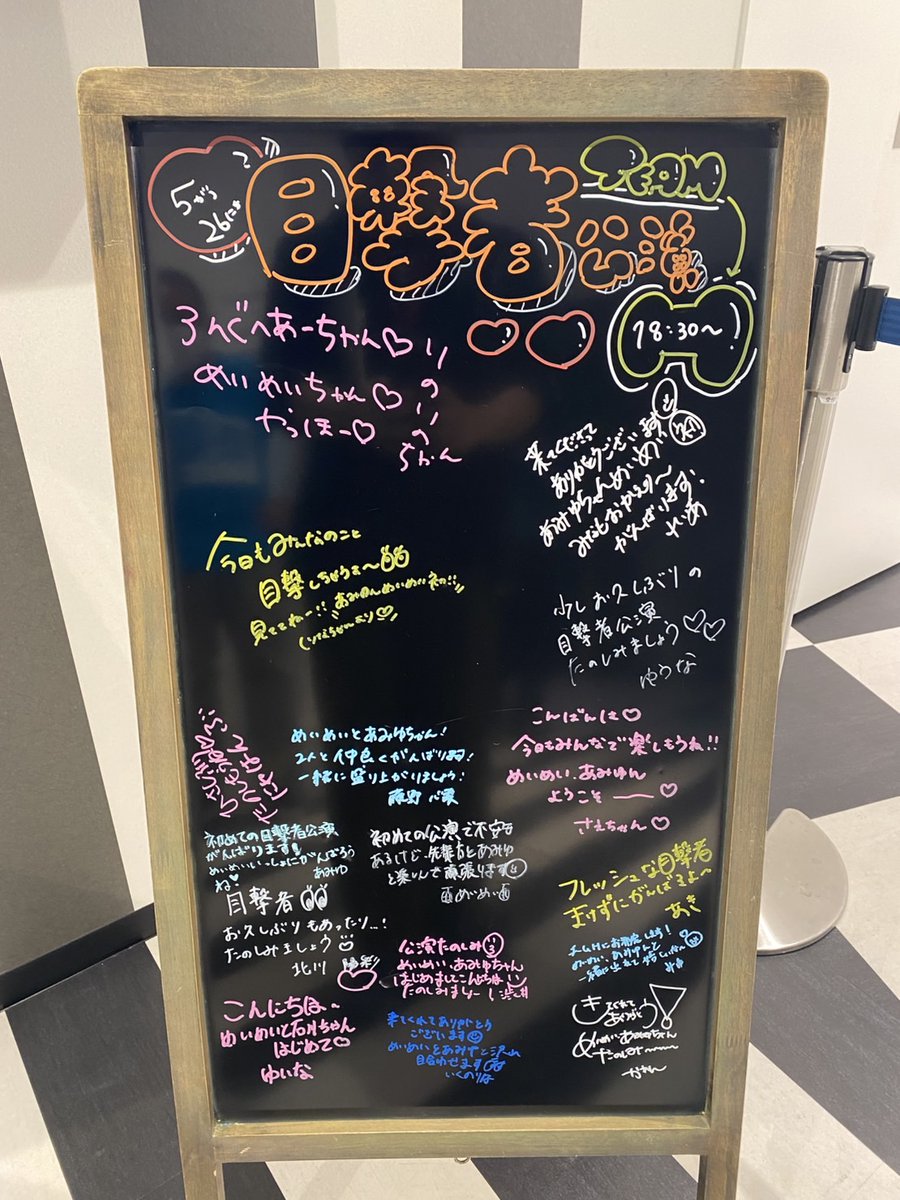 5がつ
26にち
目撃者公演
TEAM
18:30~
ろんぐへあーちゃん♡
めいめいちゃん♡
やっほー♡
りのりの
ちかん
来てくださって
ありがとうございます
あみゆちゃんめいめい
がんばります!
今日もみんなのこと
目撃しちゃうぞ~
見ててねー!!
少しお久しぶりの
目撃者公演
たのしみましょう♡♡
ゆうな
めいめいとあみゆちゃん!
2人と仲良くがんばります!
一緒に盛り上がりましょう!
藤野 心葉
こんばんは♡
今日もみんなで楽しもうね!!
めいめい、あみゆん
ようこそ ー♡
さえちゃん♡
初めての目撃者公演
がんばります!
めいめいいっしょにがんばろう
ね♡ あみゆ
初めての公演で不安も
あるけど、先輩方とあみゆ
と楽しんで頑張ります
めいめい
フレッシュな目撃者
まけずにがんばるよ~
あき
目撃者
お久しぶりもあったり...!
たのしみましょう
北川 陽彩
公演たのしみ
めいめい、あみゆちゃん
はじめましてこんにちは
たのしみましょー!
めいめい、あみゆんと
こんにちは~
めいめいと石川ちゃん
はじめて♡
ゆいな
来てくれてありがとう
ございます
めいめいとあみゆと沢山
目合わせます
いくのりな
きてくれて
ありがとう!
めいめいあみゆちゃん
たのしみー